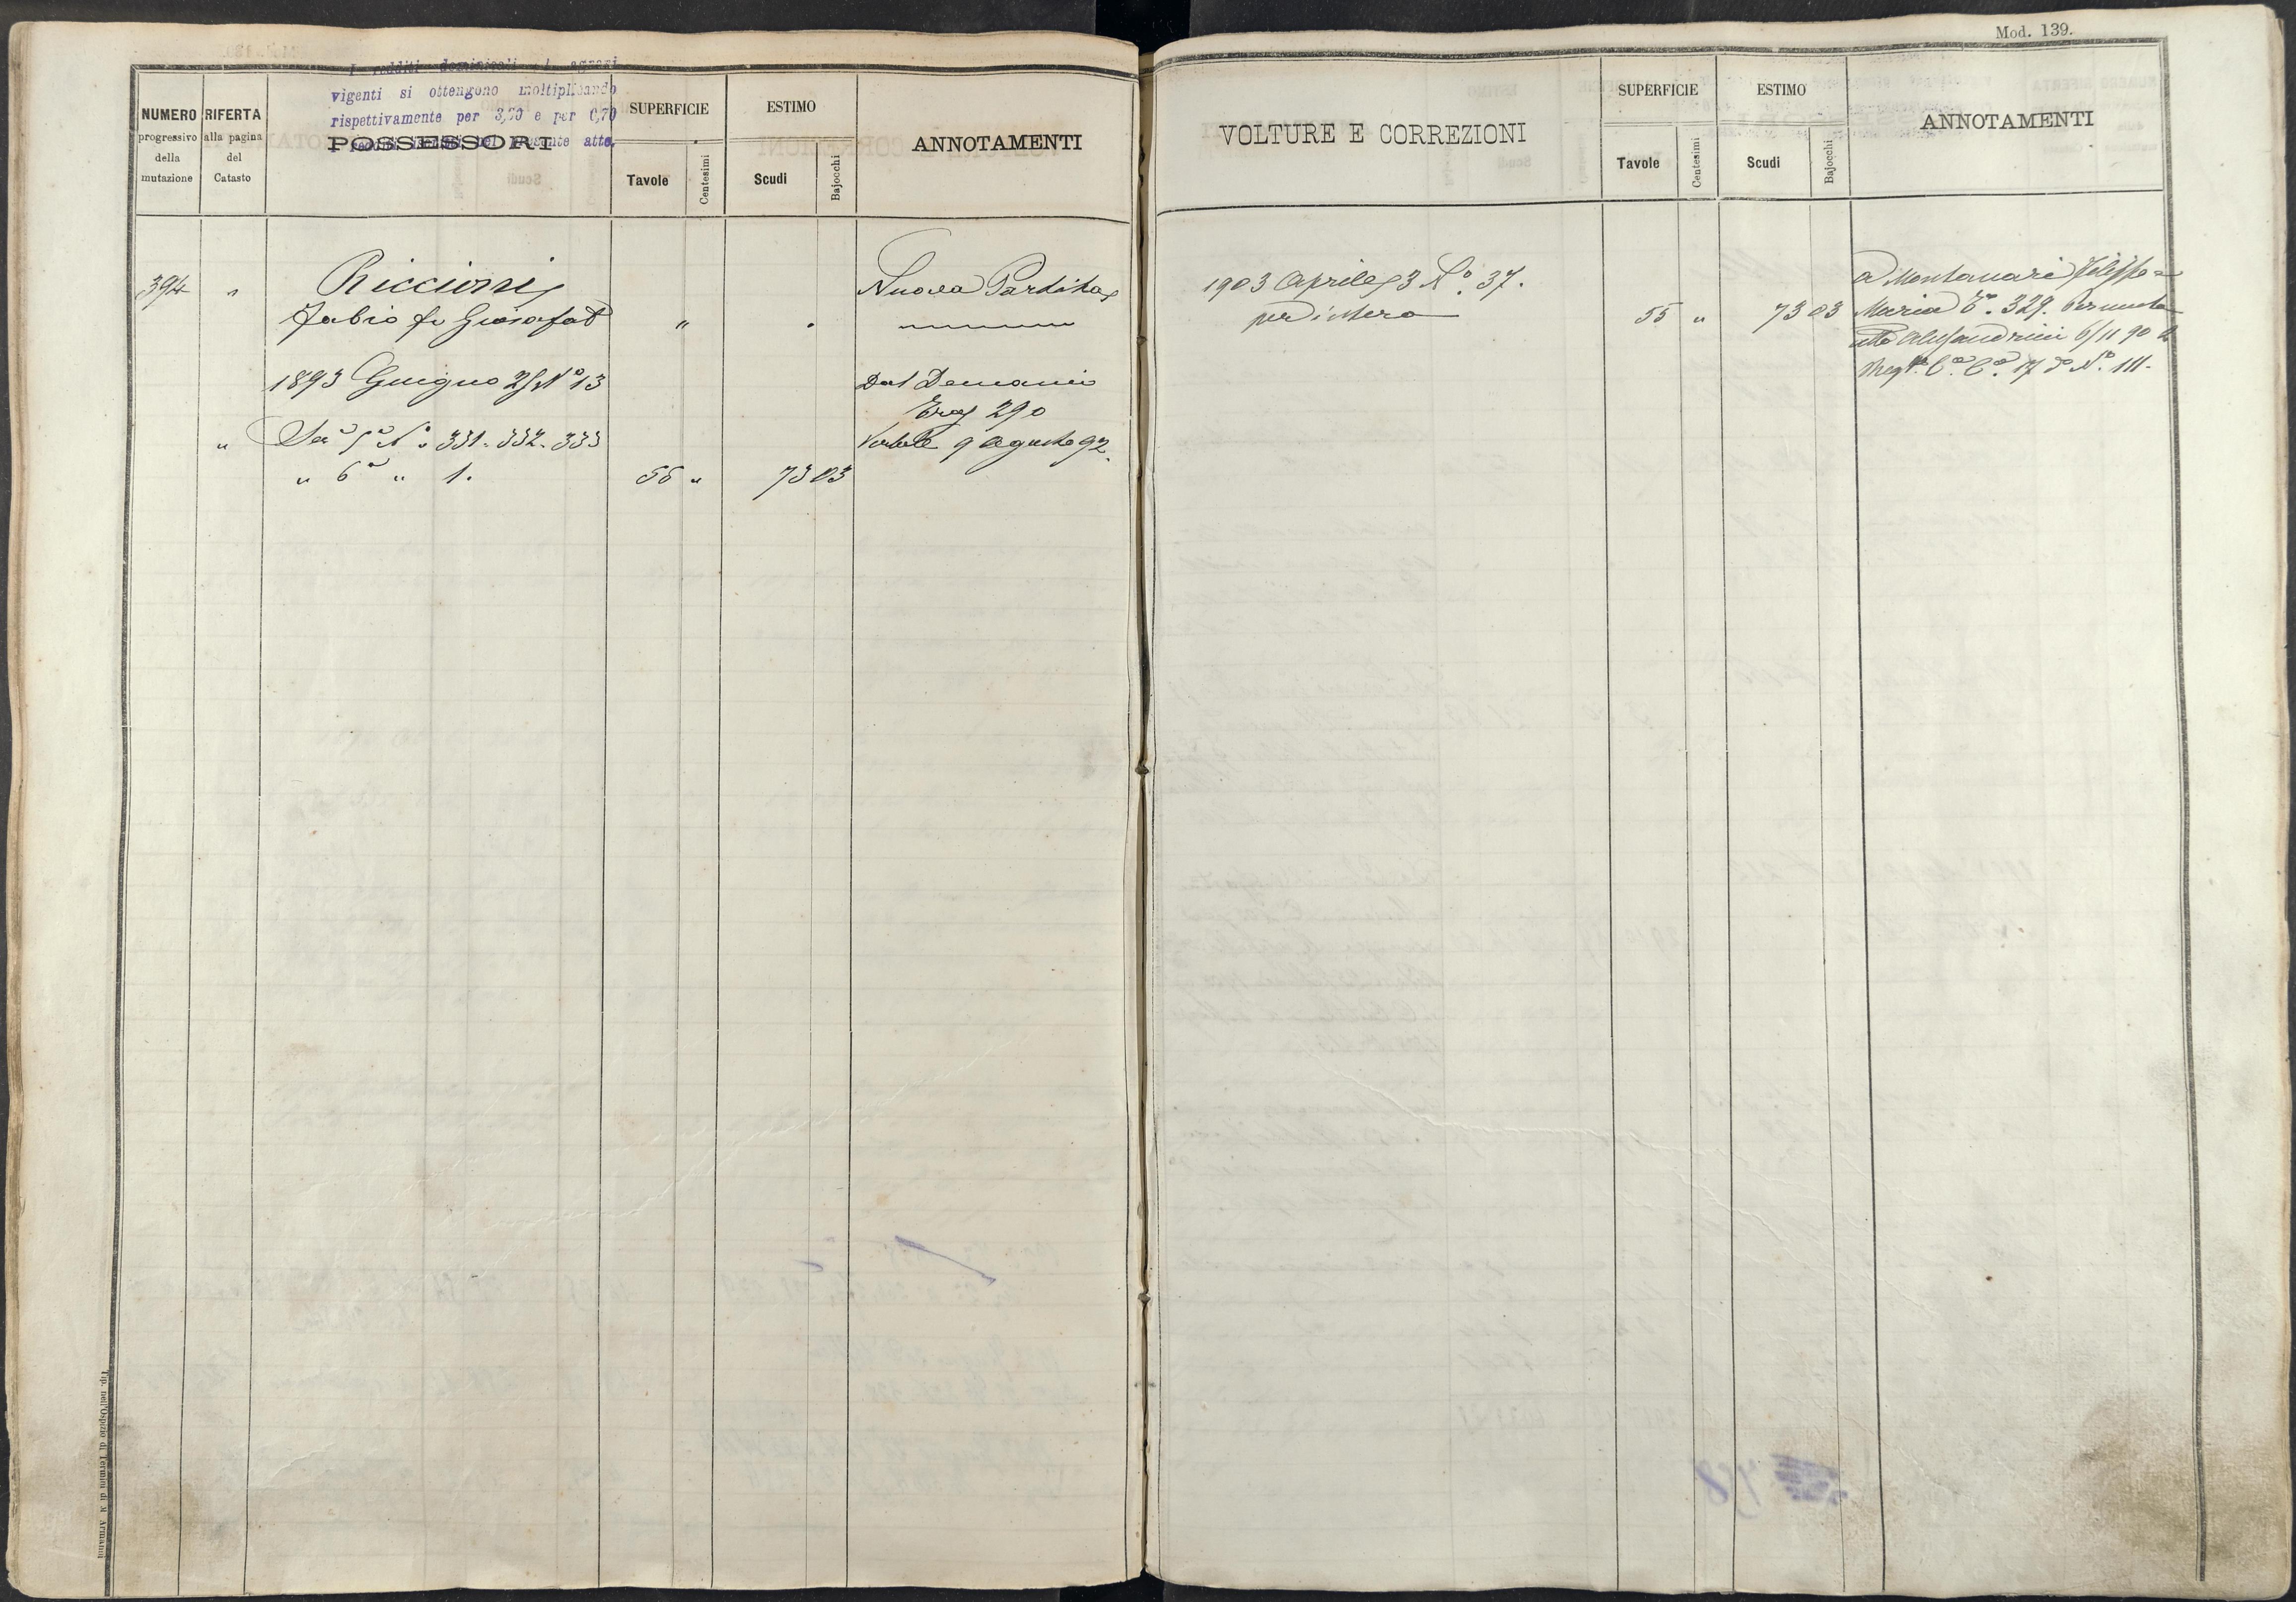 Mod. 139.
I redditi dominicali e agrari
vigenti si ottengono moltiplicando
rispettivamente per 3,70 e per 0,70
presente atto.
NUMERO
progressivo
della
mutazione
RIFERTA
alla pagina
del
Catasto
POSSESSORI
SUPERFICIE
Tavole
Centesimi
ESTIMO
Scudi
Bajocchi
ANNOTAMENTI
394 " Riccioni Nuova Partita
Fabio fu Giosafat "
1893 Giugno 25 N° 13 Dal Demanio
290
" Sea 5a N° 331. 332. 333 9 Agosto 92.
" 6a " 1. 55 " 73 03
Tip. nell'Ospizio di Termini di M. Armanni
VOLTURE E CORREZIONI
SUPERFICIE
Tavole
Centesimi
ESTIMO
Scudi
Bajocchi
ANNOTAMENTI
1903 Aprile 3 N° 37. A Montanari
per intero 55 " 73 03 Maria 329. Permuta
Alessandrini 6/11 90
17 N° 111.